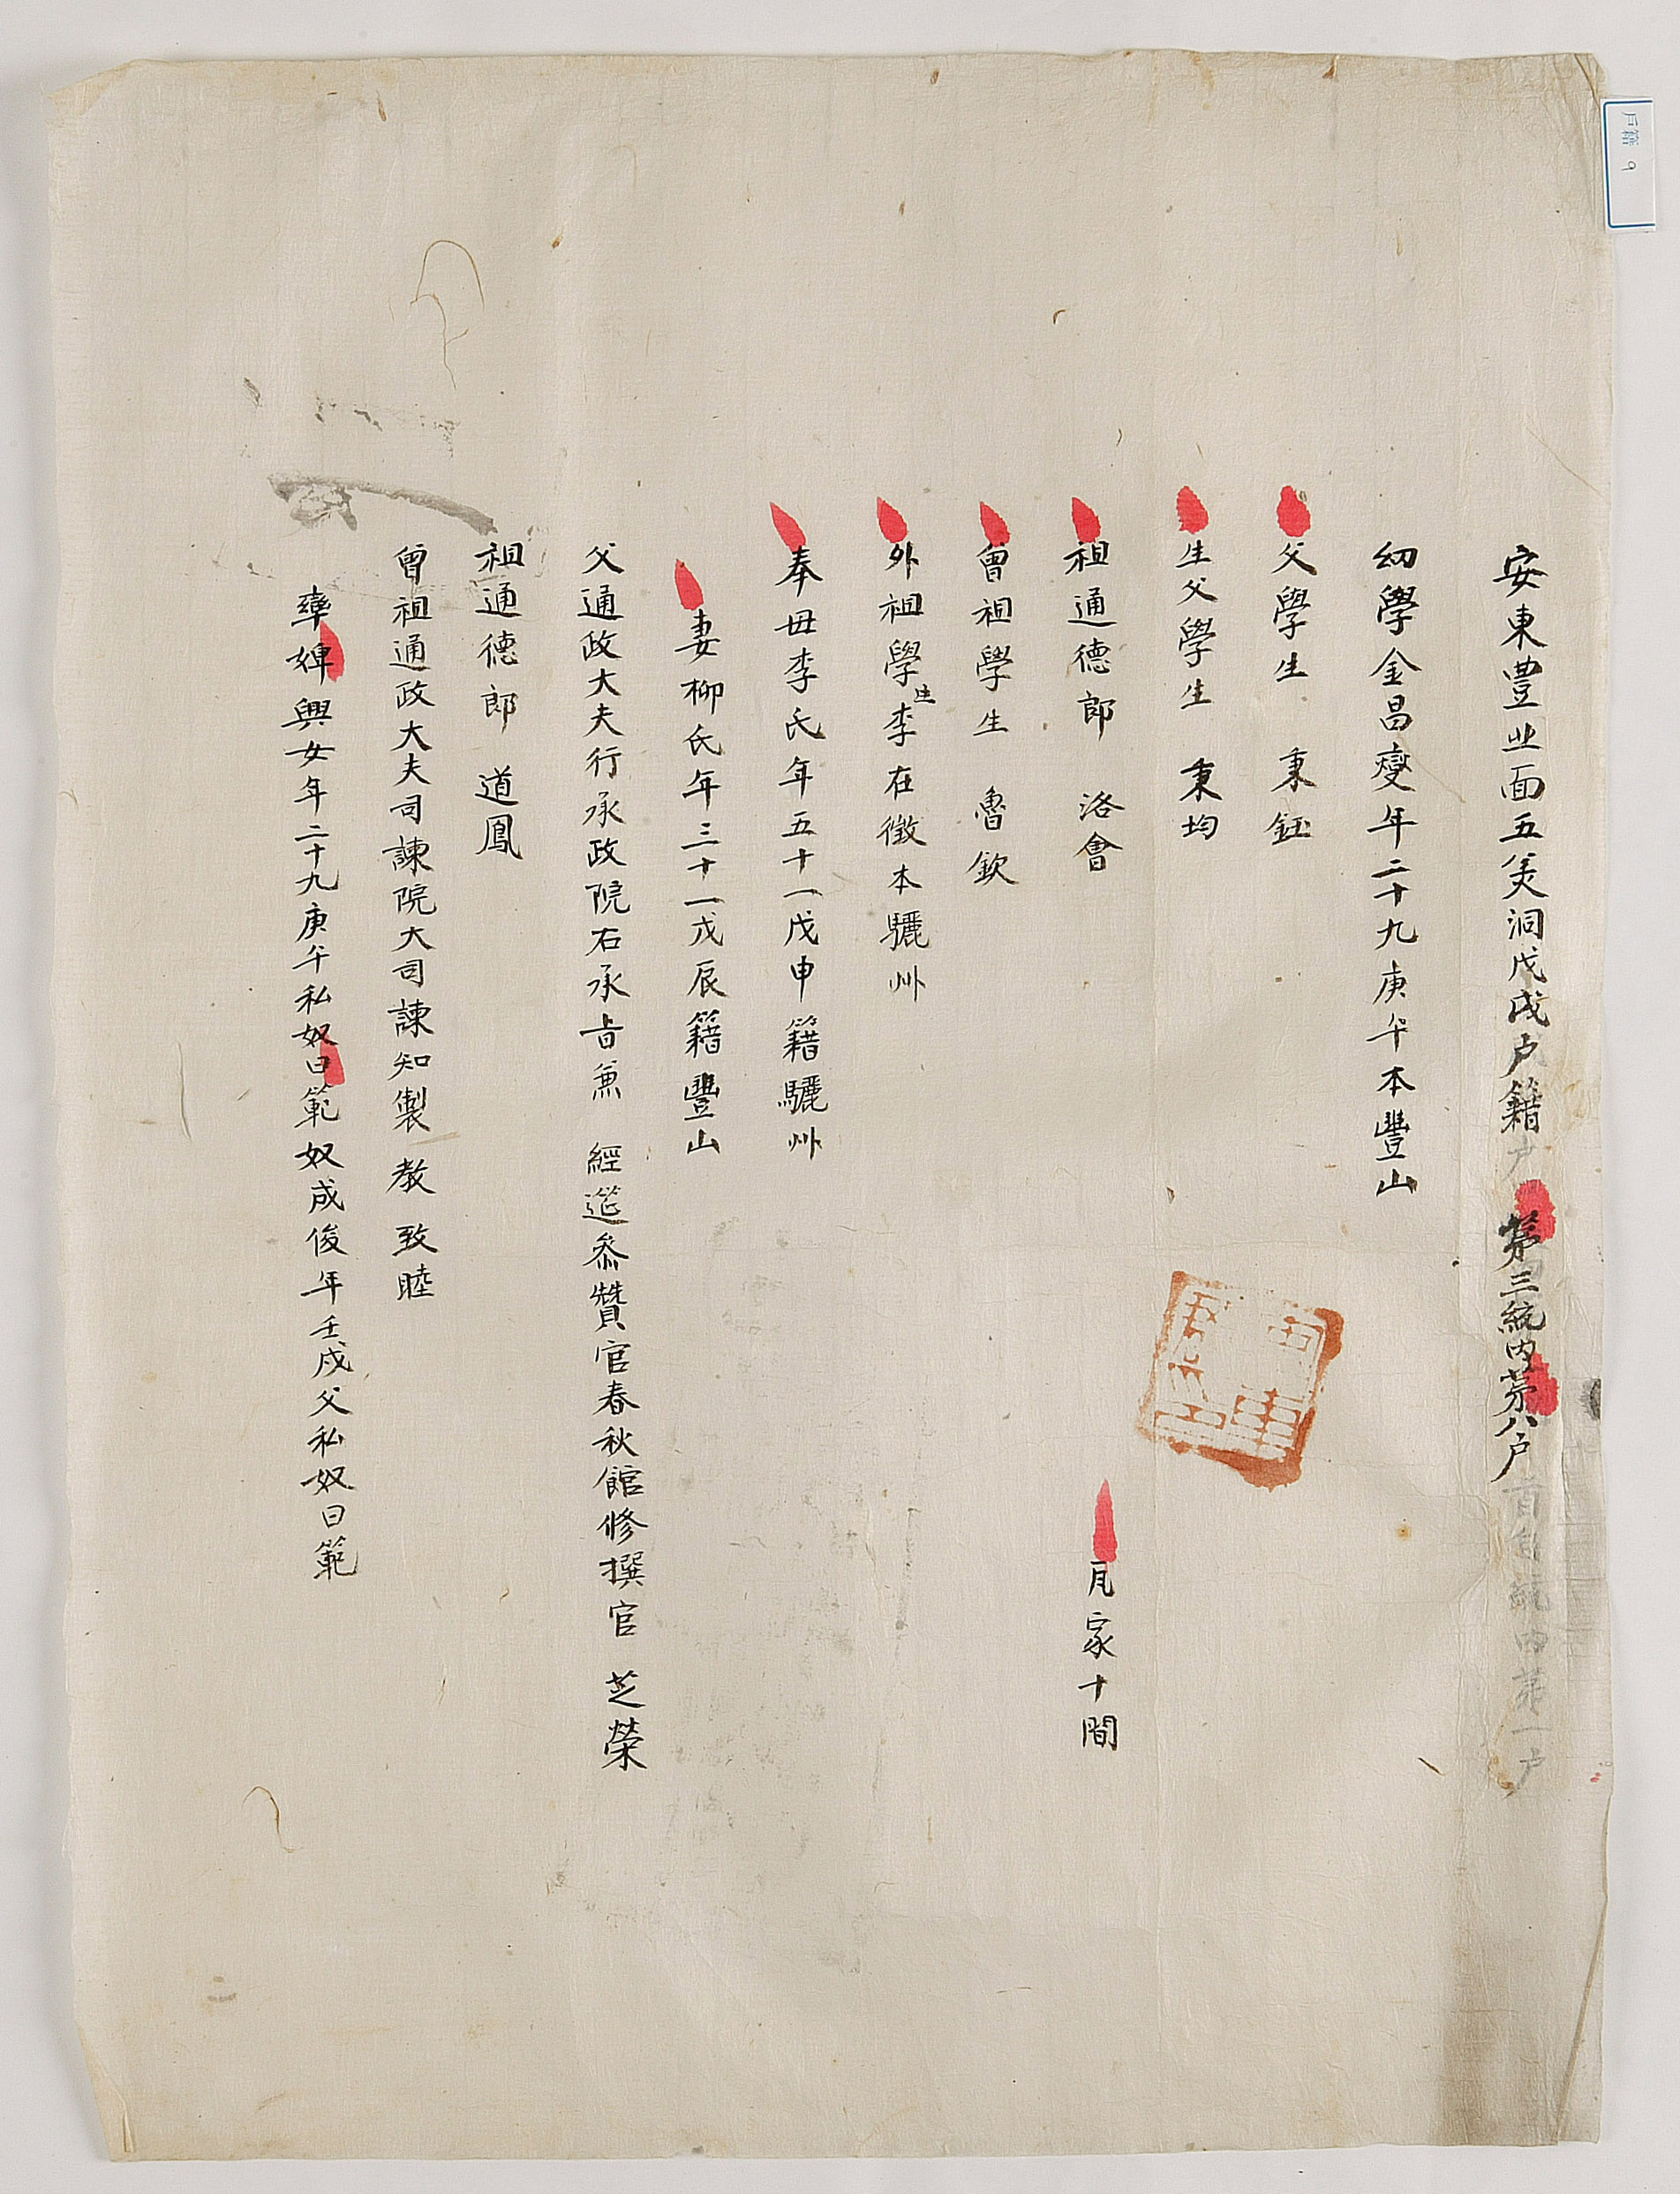 安東豊北面五美洞戊戌户籍 第三統內第八户
幼學金昌燮年二十九庚午本豐山
父學生 秉鈺
生父學生 秉均
祖通德郎 洛會
瓦家十間
曾祖學生 魯欽
外祖學生李在徵本驪州
奉母李氏年五十一戊申籍驪州
妻柳氏年三十一戊辰籍豐山
父通政大夫行承政院右承旨兼 經筵參贊官春秋館修撰官 芝榮
祖通德郎 道鳳
曾祖通政大夫司諫院大司諫知製 教 致睦
率婢興女年二十九庚午私奴曰範奴成俊年壬戌父私奴曰範
戶籍 9